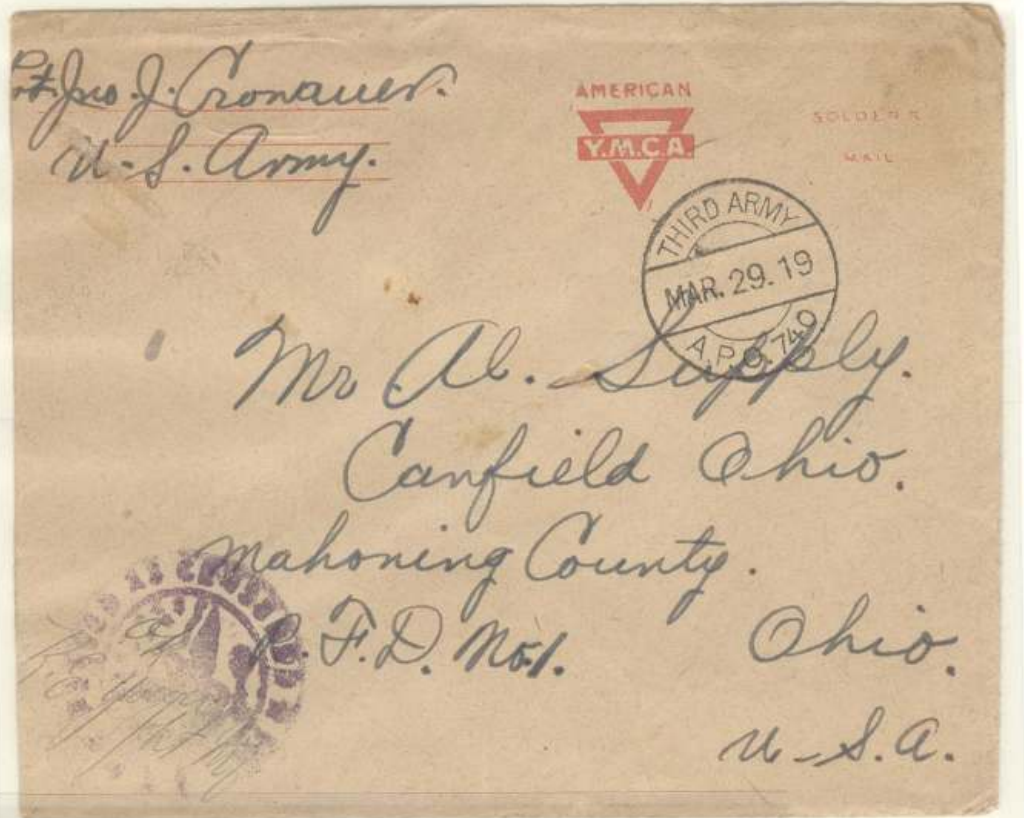 Pvt. Jno. J. Cronauer.
U.S. Army.
AMERICAN
Y.M.C.A.
SOLDIER'S
MAIL
THIRD ARMY
MAR. 29. 19
A.P.O. 740
Mr Al. Supply.
Canfield Ohio.
Mahoning County.
R.F.D. No. 1. Ohio.
U.S.A.